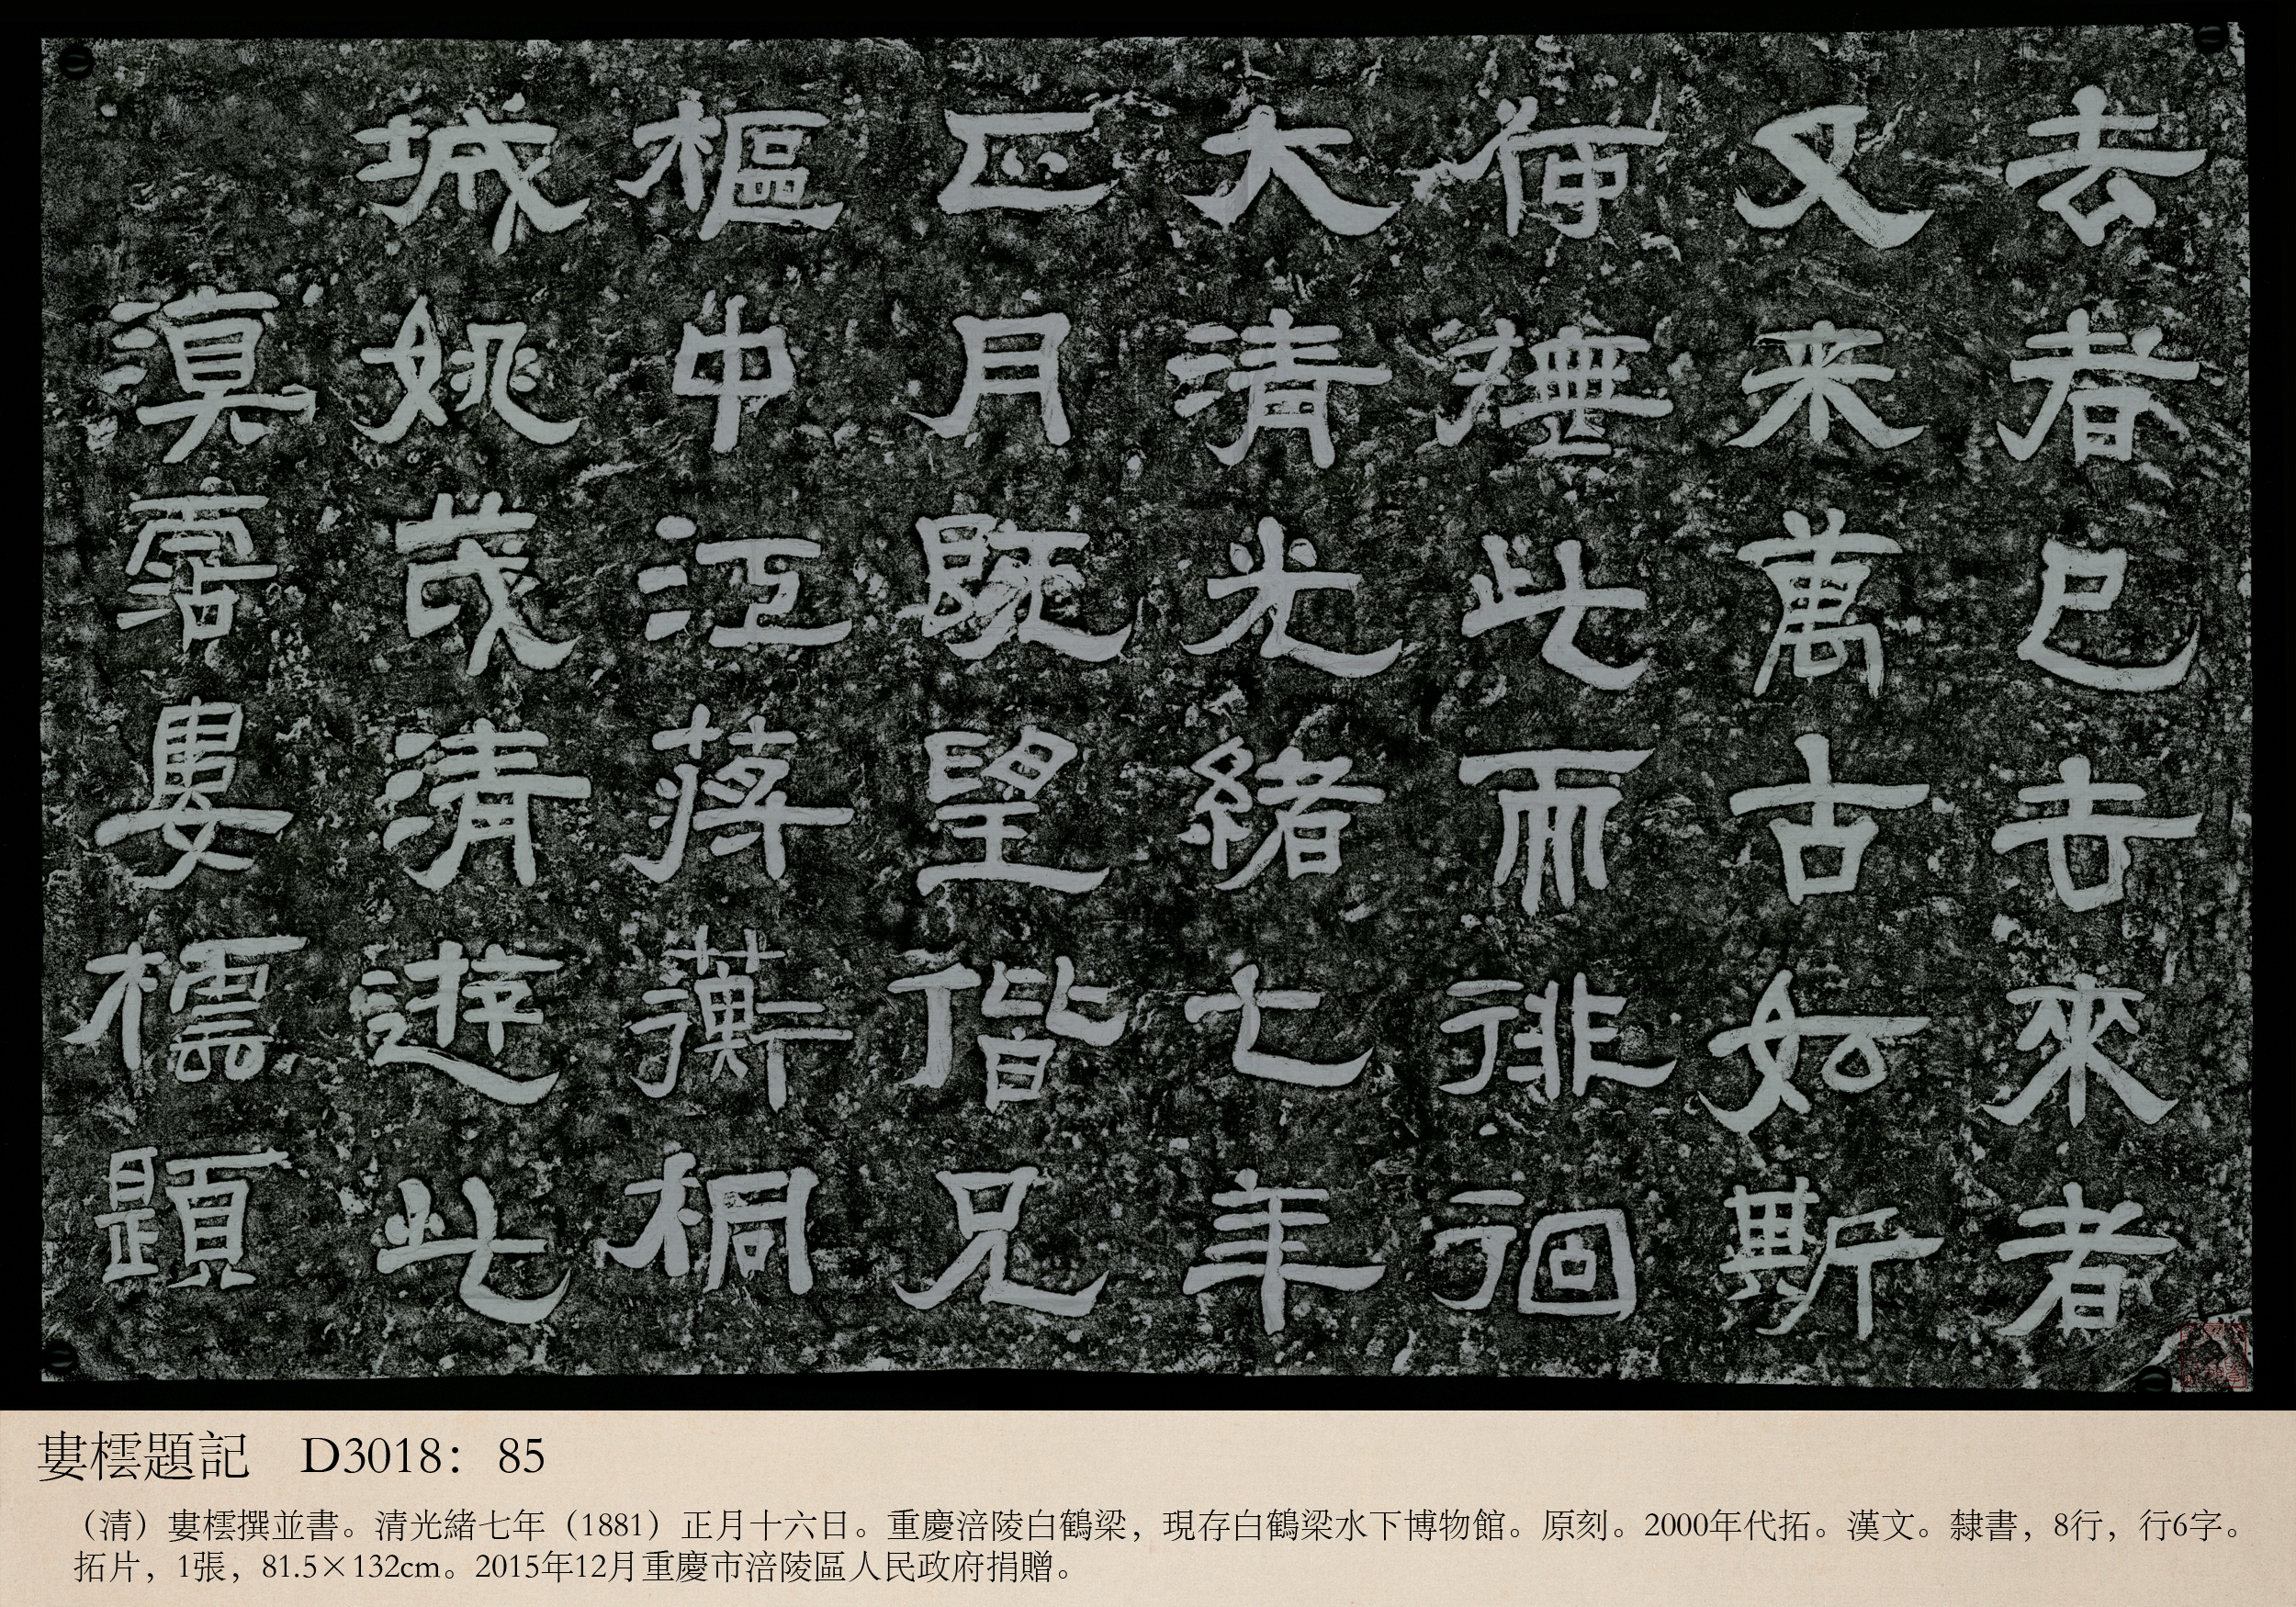 去者已去來者
又来萬古如斯
撫此而徘徊
大清光緒七年
正月既望偕兄
樞中江蔣蘅桐
城姚茂清遊此
滇霑婁橒題
婁橒題記 D3018：85
（清）婁橒撰並書。清光緒七年（1881）正月十六日。重慶涪陵白鶴梁，現存白鶴梁水下博物館。原刻。2000年代拓。漢文。隸書，8行，行6字。
拓片，1張，81.5×132cm。2015年12月重慶市涪陵區人民政府捐贈。